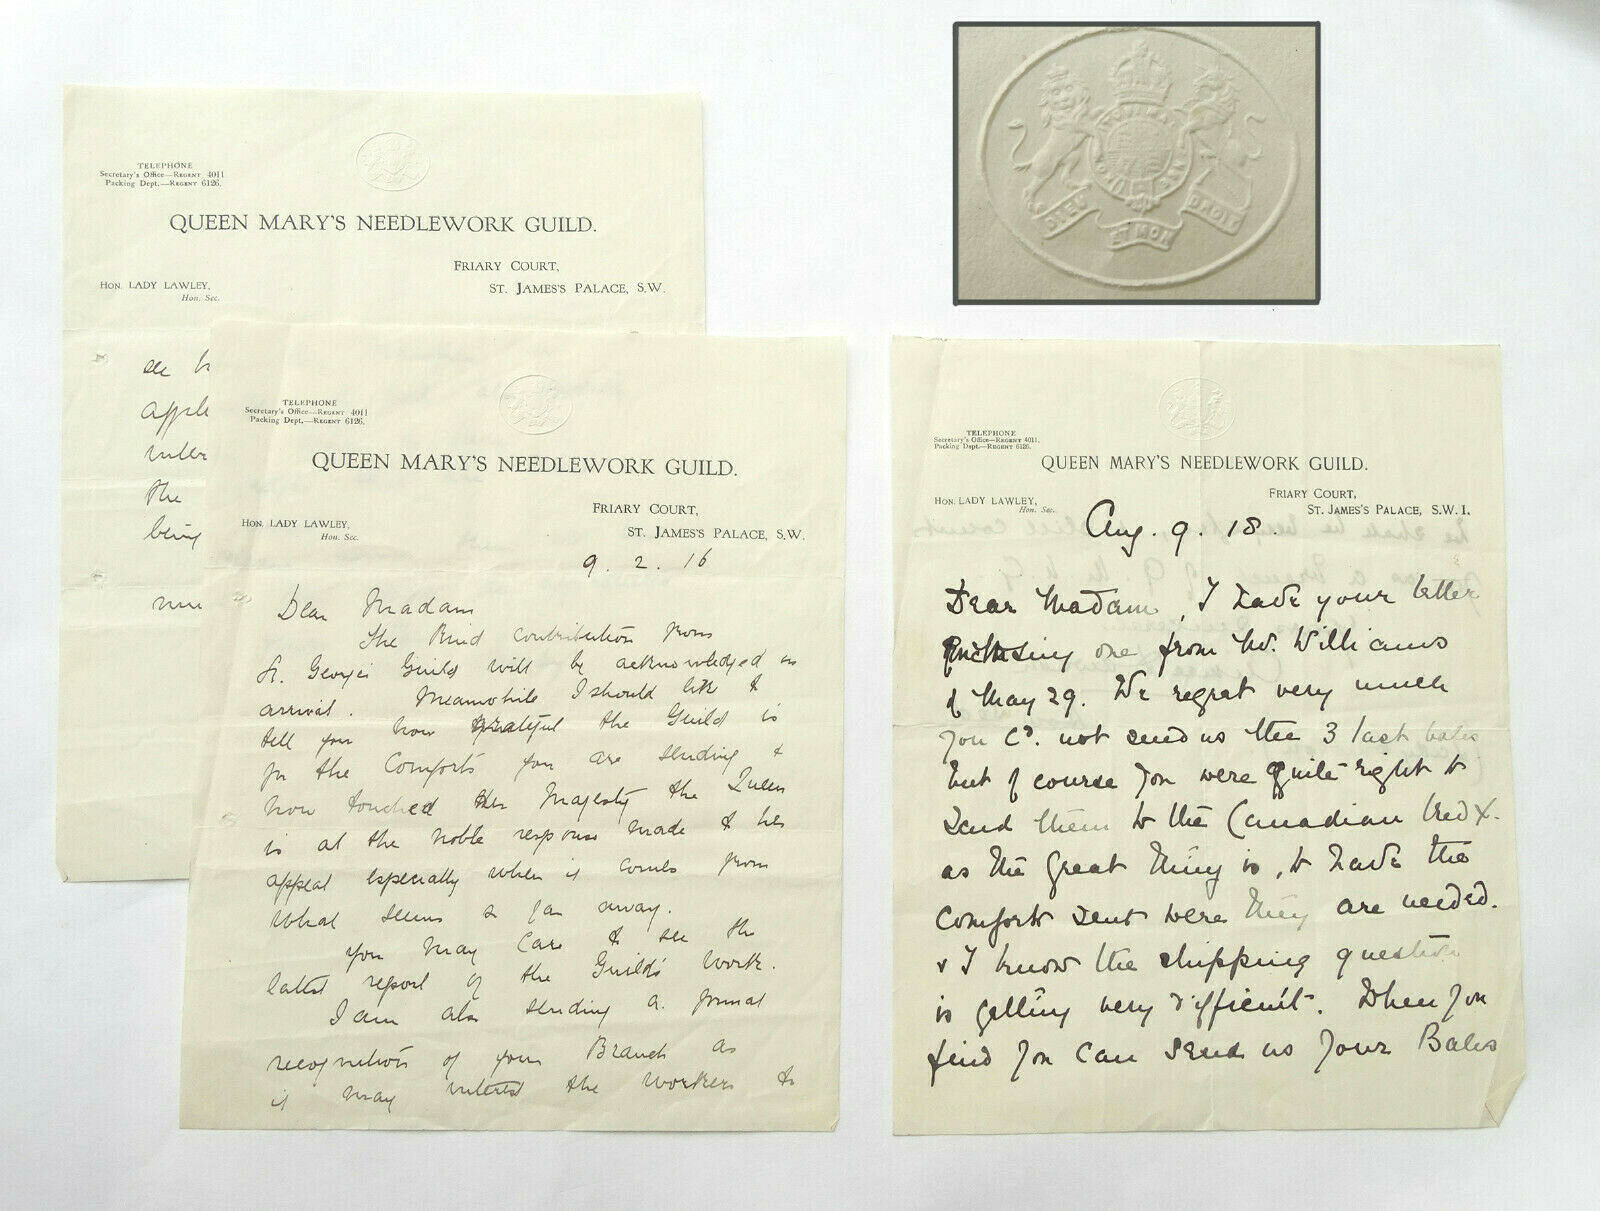 TELEPHONE
Secretary's Office—REGENT 4011
Packing Dept.—REGENT 6126.
QUEEN MARY'S NEEDLEWORK GUILD.
FRIARY COURT,
ST. JAMES'S PALACE, S.W.
HON. LADY LAWLEY,
Hon. Sec.
see
the
being
TELEPHONE
Secretary's Office—REGENT 4011
Packing Dept.—REGENT 6126.
QUEEN MARY'S NEEDLEWORK GUILD.
FRIARY COURT,
ST. JAMES'S PALACE, S.W.
HON. LADY LAWLEY,
Hon. Sec.
9. 2. 16
Dear Madam
The kind contribution from
St. George's Guild will be acknowledged on
arrival. Meanwhile I should like to
tell you how grateful the Guild is
for the Comforts you are sending &
how touched Her Majesty the Queen
is at the noble response made to her
appeal especially when it comes from
what seems so far away.
You may care to see the
latest report of the Guild's work.
I am also sending a formal
recognition of your Branch as
it may interest the workers to
DIEU ET MON DROIT
TELEPHONE
Secretary's Office—REGENT 4011.
Packing Dept.—REGENT 6126.
QUEEN MARY'S NEEDLEWORK GUILD.
FRIARY COURT,
ST. JAMES'S PALACE, S.W. 1.
HON. LADY LAWLEY,
Hon. Sec.
Aug. 9. 18.
Dear Madam, I have your letter
enclosing one from Mr. Williams
of May 29. We regret very much
you cd. not send us the 3 last bales
but of course you were quite right to
send them to the Canadian Red X.
as the great thing is, to have the
comforts sent where they are needed.
& I know the shipping question
is getting very difficult. When you
find you can send us your Bales